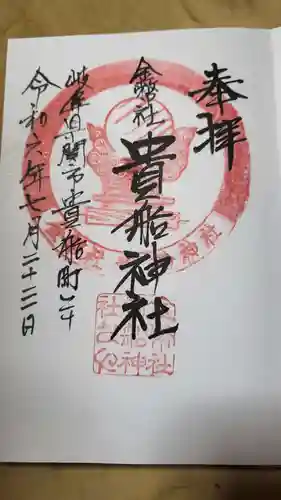 奉拝
金幣社
貴船神社
岐阜県関市貴船町二十
令和六年七月二十二日